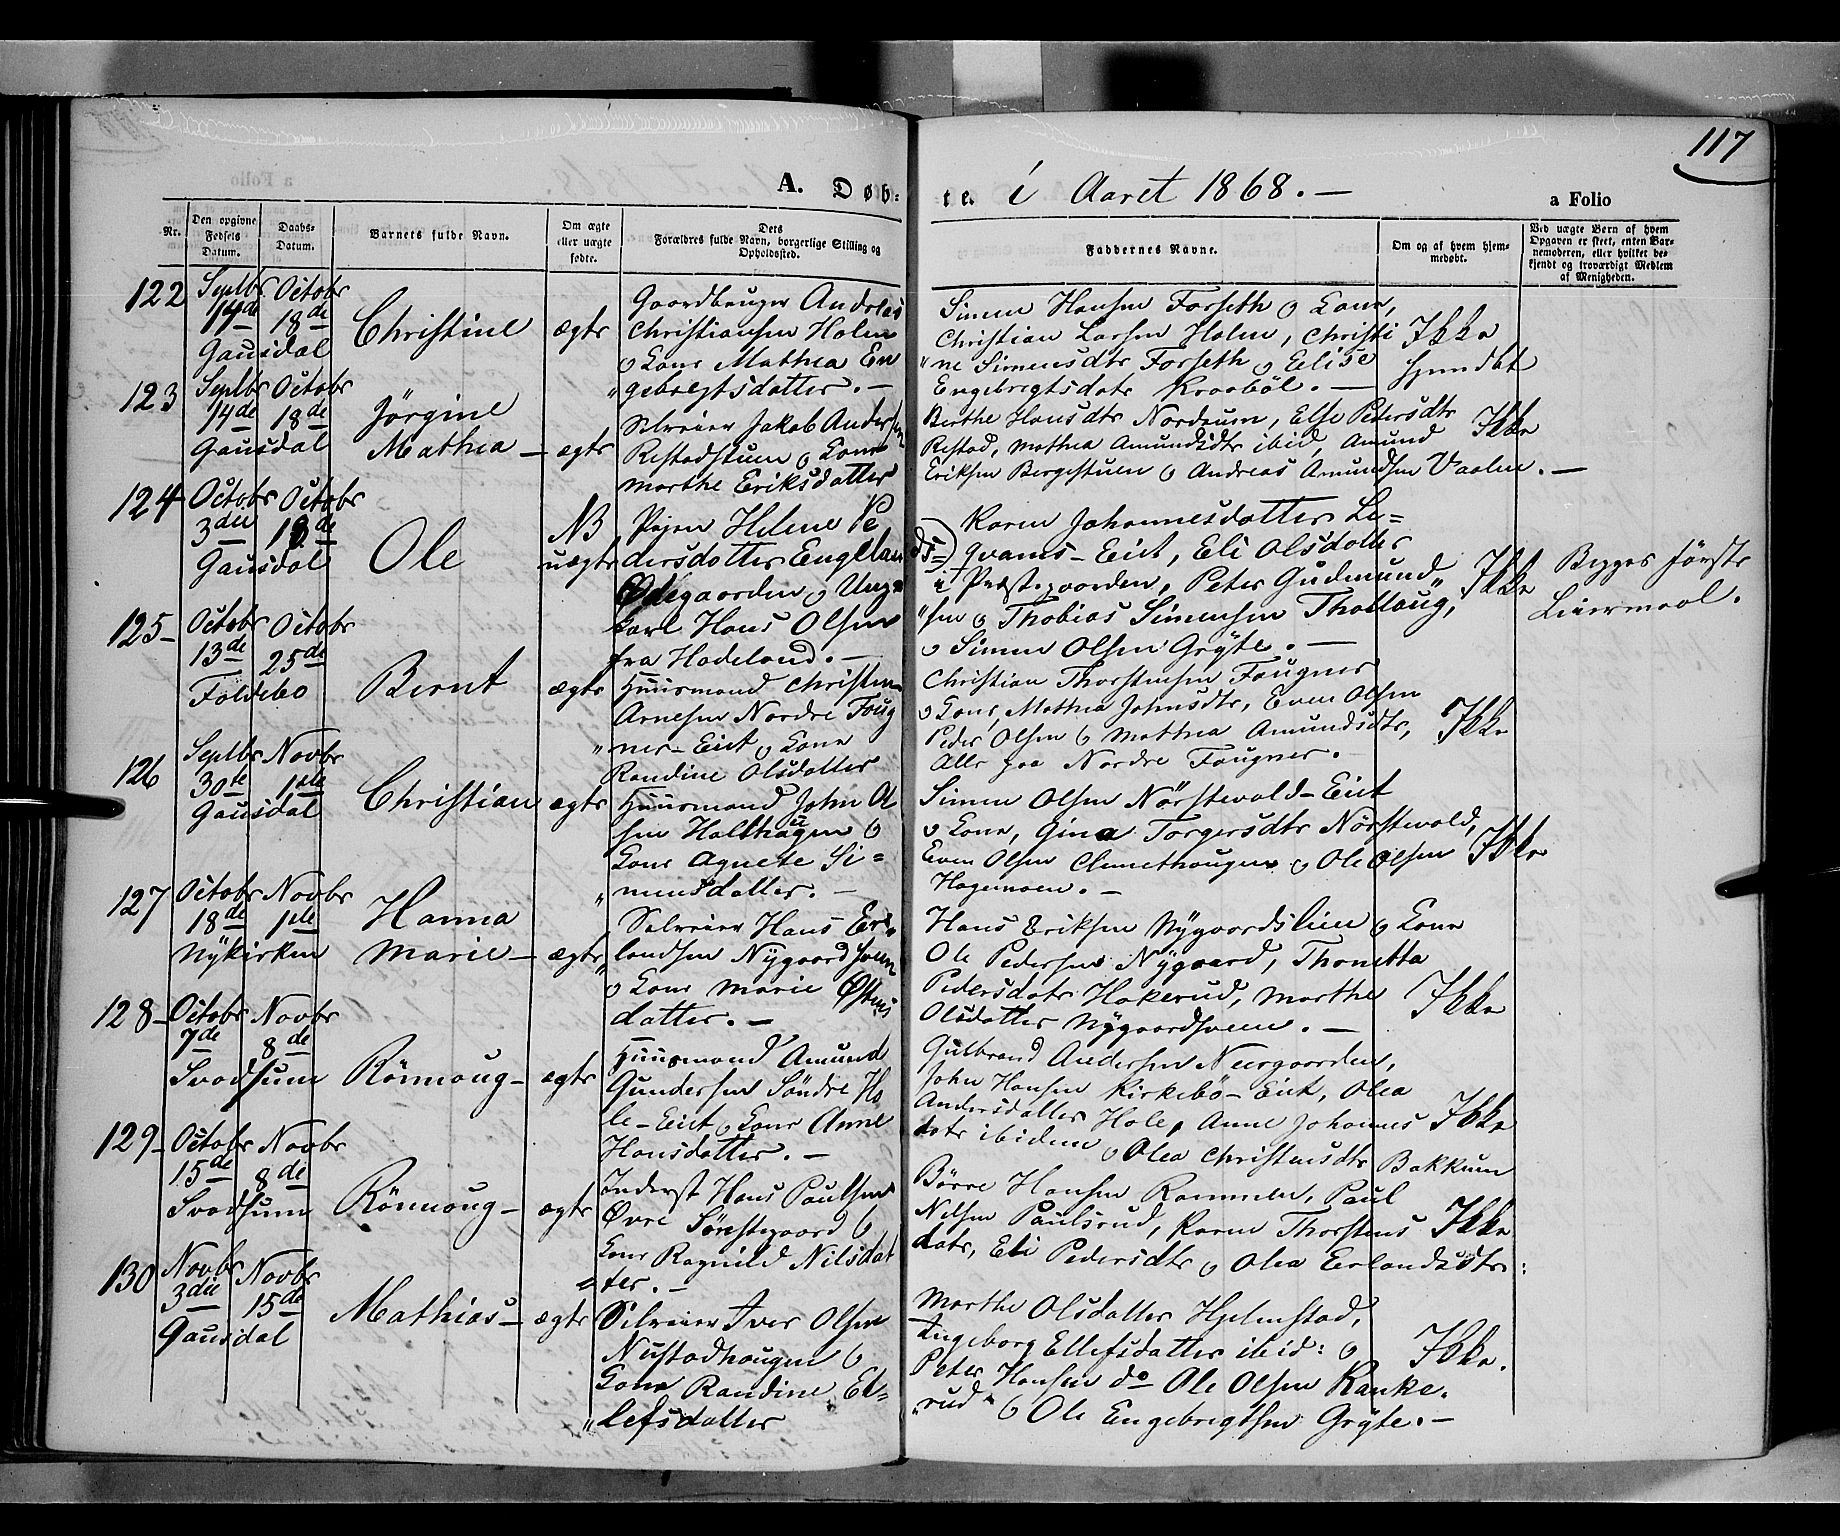 117
A. Døb=
te. i Aaret 1868. —
a Folio
Nr.
Den opgivne Fødsels Datum.
Daabs-Datum.
Barnets fulde Navn.
Om ægte eller uægte fødte.
Dets Forældres fulde Navn, borgerlige Stilling og Opholdssted.
Faddernes Navne.
Om og af hvem hjemmedøbt.
Ved uægte Børn af hvem Opgaven er skeet, enten Barnemoderen, eller hvilket bekjendt og troværdigt Medlem af Menigheden.
122 Septbr 14de Octobr 18de
Gausdal
Christine ægte
Gaardbruger Andreas
Christiansen Holen
o Kone Mathea En
"gebregtsdatter. —
Simen Hansen Forseth o Kone,
Christian Larsen Holen, Christi
"ne Simensdtr Forseth o Eelise
Engebregtsdatr Kraabøl. —
Ikke
123 Septbr 14de Octobr 18de
Gausdal
Jörgine
Mathea — ægte
Selveier Jakob Andersen
Restadstuen o Kone
Marthe Eriksdatter
Berthe Hansdtr Nordrum, Else Petersdtr
Restad, Mathea Amundsdtr ibid, Amund
Eriksen Bergestuen o Andreas Amundsen Vaalen. —
Ikke
124 Octobr 3die Octobr 18de
Gausdal
Ole
NB
uægte
Pigen Helene Pe
dersdatter Engelan
Ødegaarden o Unge
karl Hans Olsen
fra Hadeland. —
Karen Johannesdatter Le=
qvams-Eiet, Eli Olsdatter
i Præstegaarden, Peter Gudmund
"sen o Thobias Simensen Thallaug,
o Simen Olsen Gryte. —
Ikke
Begges første
Leiermaal.
125 — Octobr 13de Octobr 25de
Foldebo
Bernt ægte
Huusmand Christen
Arnesen Nordre Foug
"ner-Eiet o Kone
Randine Olsdatter
Christian Thorstensen Fougner
o Kone, Mathea Johnsdtr, Even Olsen
Peder Olsen o Mathea Amundsdtr,
Alle paa Nordre Fougner.
Ikke
126 Septbr 30te Novbr 1ste
Gausdal
Christian ægte
Huusmand John Ol
sen Halthaugen o
Kone Agnete Si=
"mensdatter. —
Simen Olsen Nörstevold-Eiet
o Kone, Gina Torgersdtr Nörstevold,
Even Olsen Clemethaugen o Ole Olsen
Hagemoen. —
Ikke
127 Octobr 18de Novbr 1ste
Nykirken
Hanna
Marie — ægte
Selveier Hans Er=
"landsen Nygaardsveen
o Kone Marie Østens
datter. —
Hans Eriksen Nygaardslien o Kone
Ole Pedersen Nygaard, Thonetta
Pedersdatr Hakerud, Marthe
Olsdatter Nygaardsveen. —
Ikke
128 — Octobr 7de Novbr 8de
Svodsum
Rönnoug — ægte
Huusmand Amund
Gundersen Söndre Ho
le-Eiet o Kone Anne
Hansdatter. —
Gulbrand Andersen Neergaarden,
John Hansen Kirkebö-Eiet, Olea
Andersdatter Hole, Anne Johannes
datr ibidem o Olea Christensdtr Bakkum
Ikke
129 — Octobr 15de Novbr 8de
Svodsum
Rönnoug — ægte
Inderst Hans Paulsen
Øvre Sörstegaard o
Kone Ragnild Nilsdat
"ter. —
Börre Hansen Rammen, Paul
Nilsen Paulsrud, Karen Thorstens
datr, Eli Pedersdtr o Olea Erlandsdtr:
Ikke
130 Novbr 3die Novbr 15de
Gausdal
Mathias — ægte
Selveier Iver Olsen
Nustadhaugen o
Kone Randine El=
"lefsdatter
Marthe Olsdatter Hjelmstad,
Ingeborg Ellefsdatter ibid: o
Peter Hansen do Ole Olsen Kanke.
"rud" o Ole Engebrigtsen Gryte. —
Ikke.